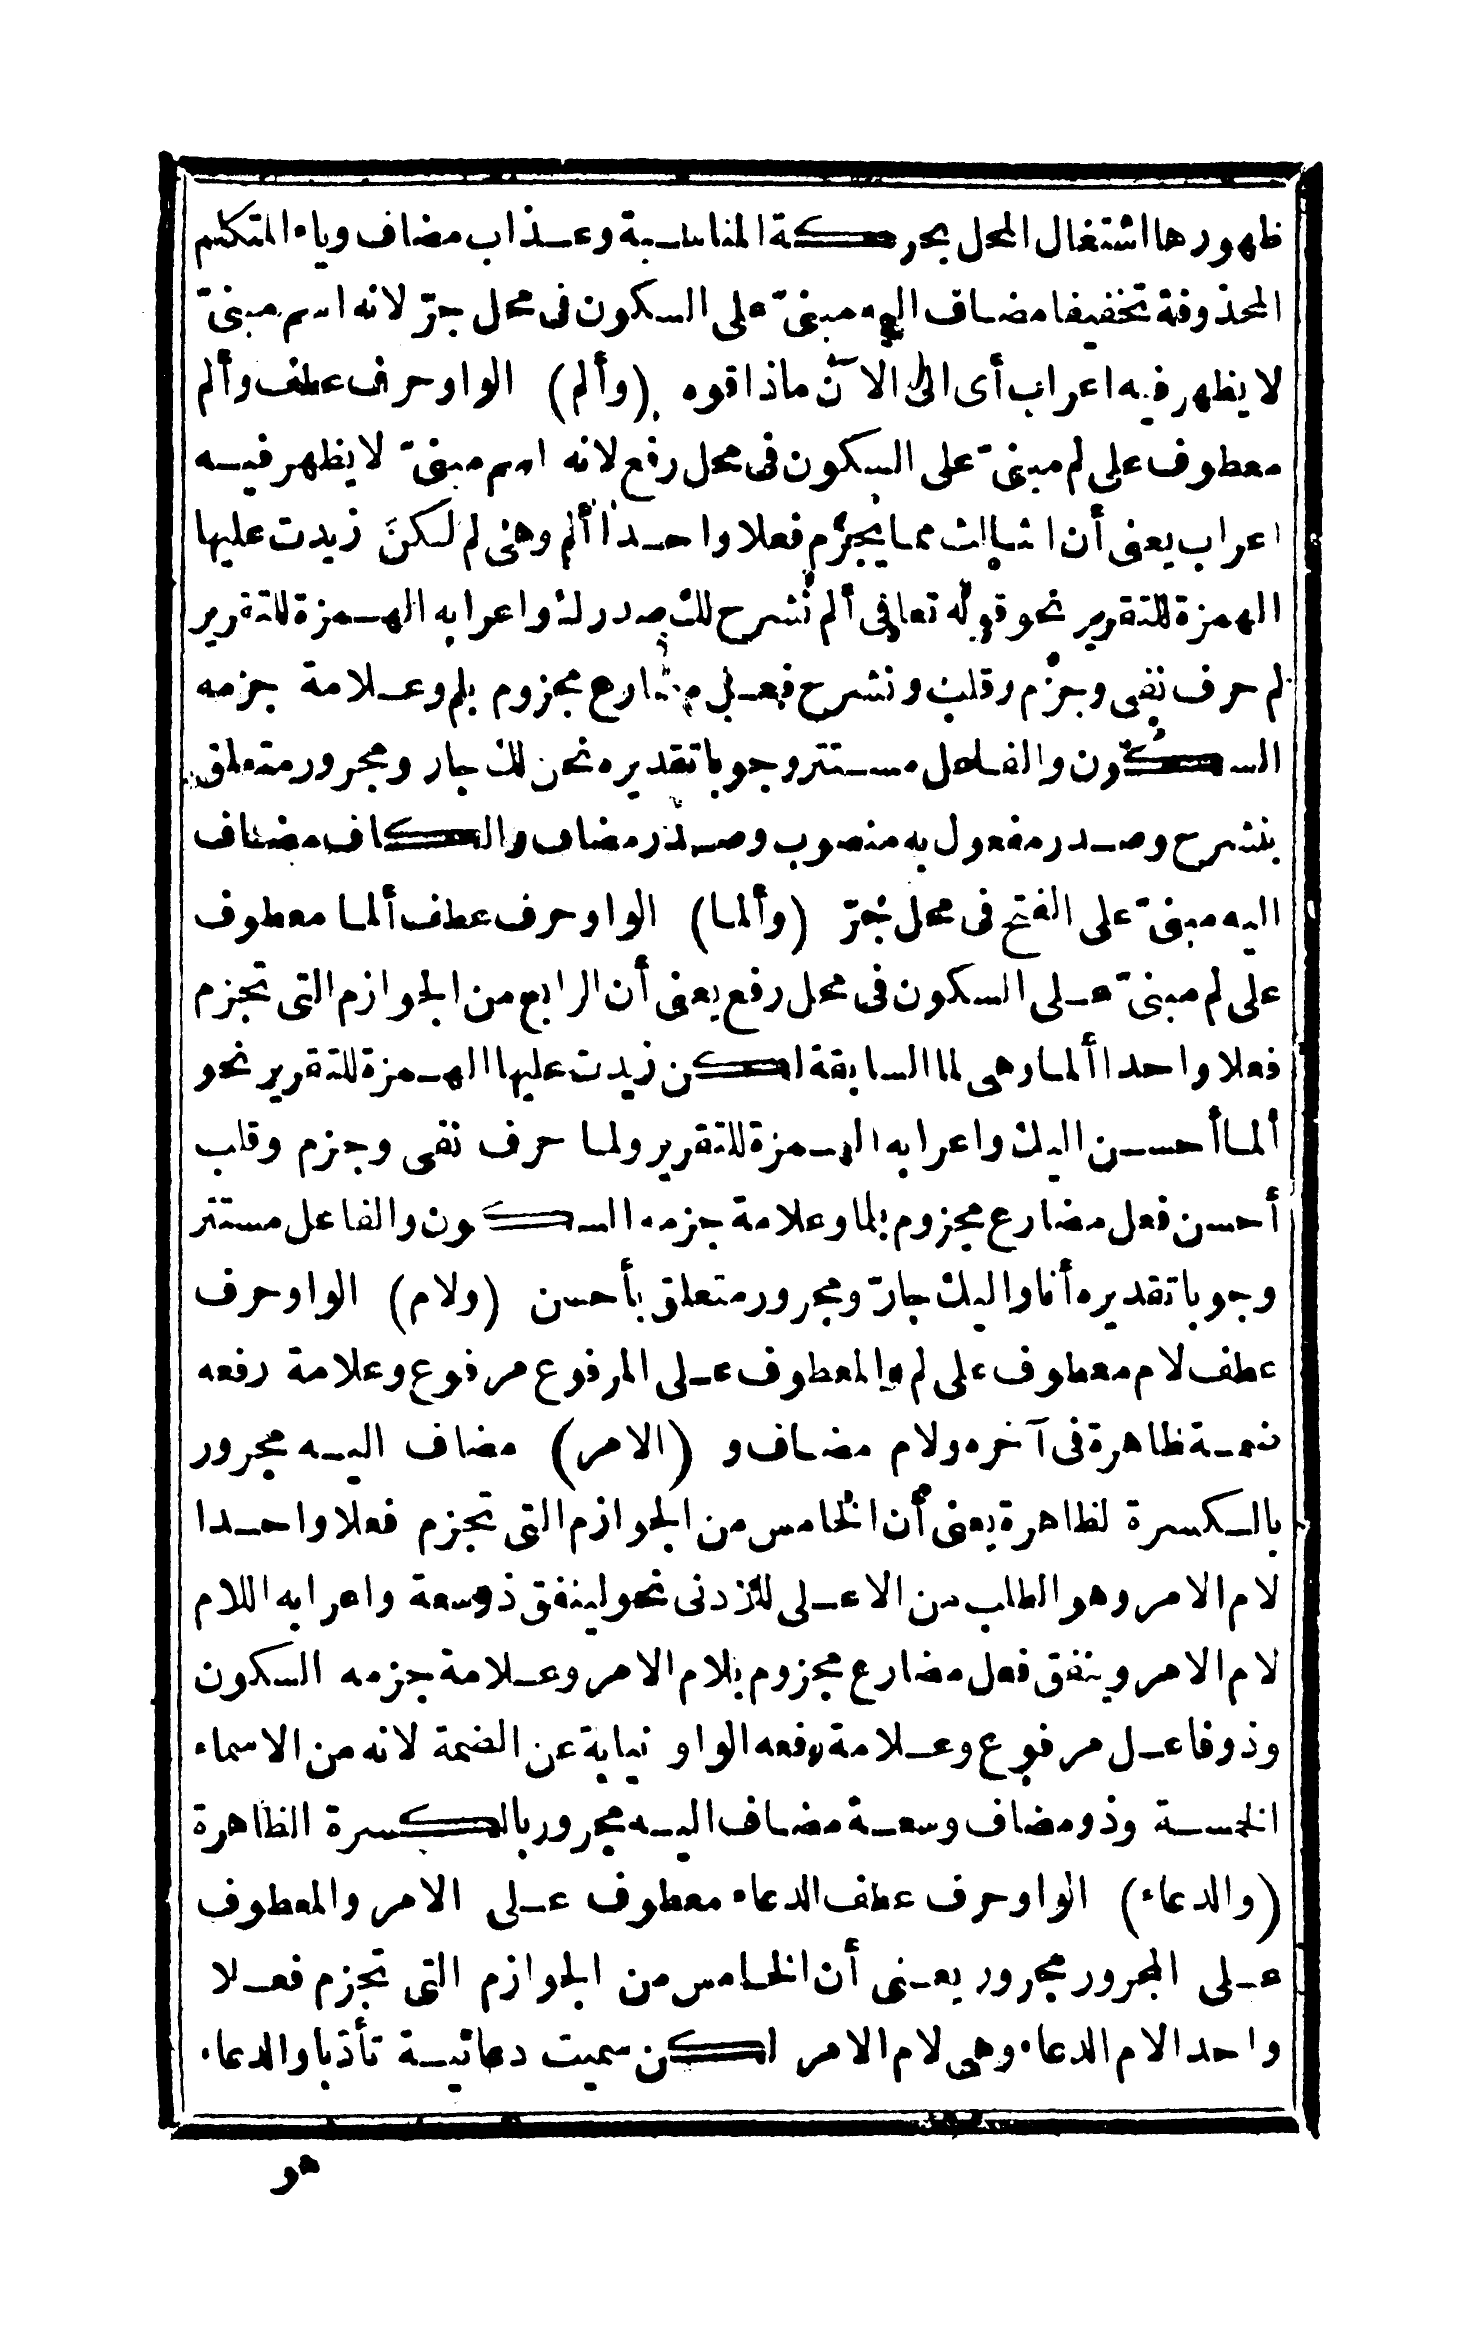 ظهورها اشتغال المحل بحركة المناسبة وعذاب مضاف وياء المتكلم
المحذوفة تخفيفا مضاف اليه مبنىّ على السكون فى محل جرّ لانه اسم مبنىّ
لا يظهر فيه اعراب أى الى الآن ماذاقوه (وألم) الواو حرف عطف وألم
معطوف على لم مبنىّ على السكون فى محل رفع لانه اسم مبنىّ لا يظهر فيه
اعراب يعنى أن الثالث مما يجزم فعلا واحدا ألم وهى لم لكن زيدت عليها
الهمزة للتقرير نحو قوله تعالى ألم نشرح لك صدرك واعرابه الهمزة للتقرير
لم حرف نفى وجزم وقلب ونشرح فعل مضارع مجزوم بلم وعلامة جزمه
السكون والفاعل مستتر وجوبا تقديره نحن لك جار ومجرور متعلق
بنشرح وصدر مفعول به منصوب وصدر مضاف والكاف مضاف
اليه مبنىّ على الفتح فى محل جرّ (وألما) الواو حرف عطف ألما معطوف
على لم مبنىّ على السكون فى محل رفع يعنى أن الرابع من الجوازم التى تجزم
فعلا واحدا ألما وهى لما السابقة لكن زيدت عليها الهمزة للتقرير نحو
ألما أحسن اليك واعرابه الهمزة للتقرير ولما حرف نفى وجزم وقلب
أحسن فعل مضارع مجزوم بلما وعلامة جزمه السكون والفاعل مستتر
وجوبا تقديره أنا واليك جارّ ومجرور متعلق بأحسن (ولام) الواو حرف
عطف لام معطوف على لم والمعطوف على المرفوع مرفوع وعلامة رفعه
ضمة ظاهرة فى آخره ولام مضاف و (الامر) مضاف اليه مجرور
بالكسرة لظاهرة يعنى أن الخامس من الجوازم التى تجزم فعلا واحدا
لام الامر وهو الطلب من الاعلى للأدنى نحو لينفق ذو سعة واعرابه اللام
لام الامر وينفق فعل مضارع مجزوم بلام الامر وعلامة جزمه السكون
وذو فاعل مرفوع وعلامة رفعه الواو نيابة عن الضمة لانه من الاسماء
الخمسة وذو مضاف وسعة مضاف اليه مجرور بالكسرة الظاهرة
(والدعاء) الواو حرف عطف الدعاء معطوف على الامر والمعطوف
على المجرور مجرور يعنى أن الخامس من الجوازم التى تجزم فعلا
واحدا لام الدعاء وهى لام الامر لكن سميت دعائية تأدبا والدعاء
هو